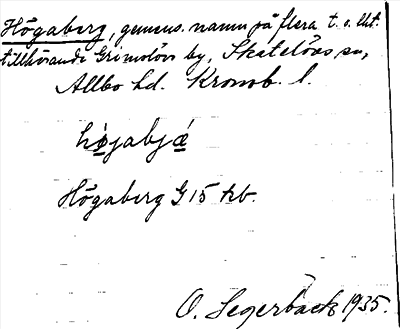 Högaberg, gemens. namn på flera t. o. llt.
tillhörande Grimslövs by, Skatelövs sn,
Allbo hd. Kronob. l.
högabjä
Högaberg G 15 kb.
O. Segerbäck 1935.